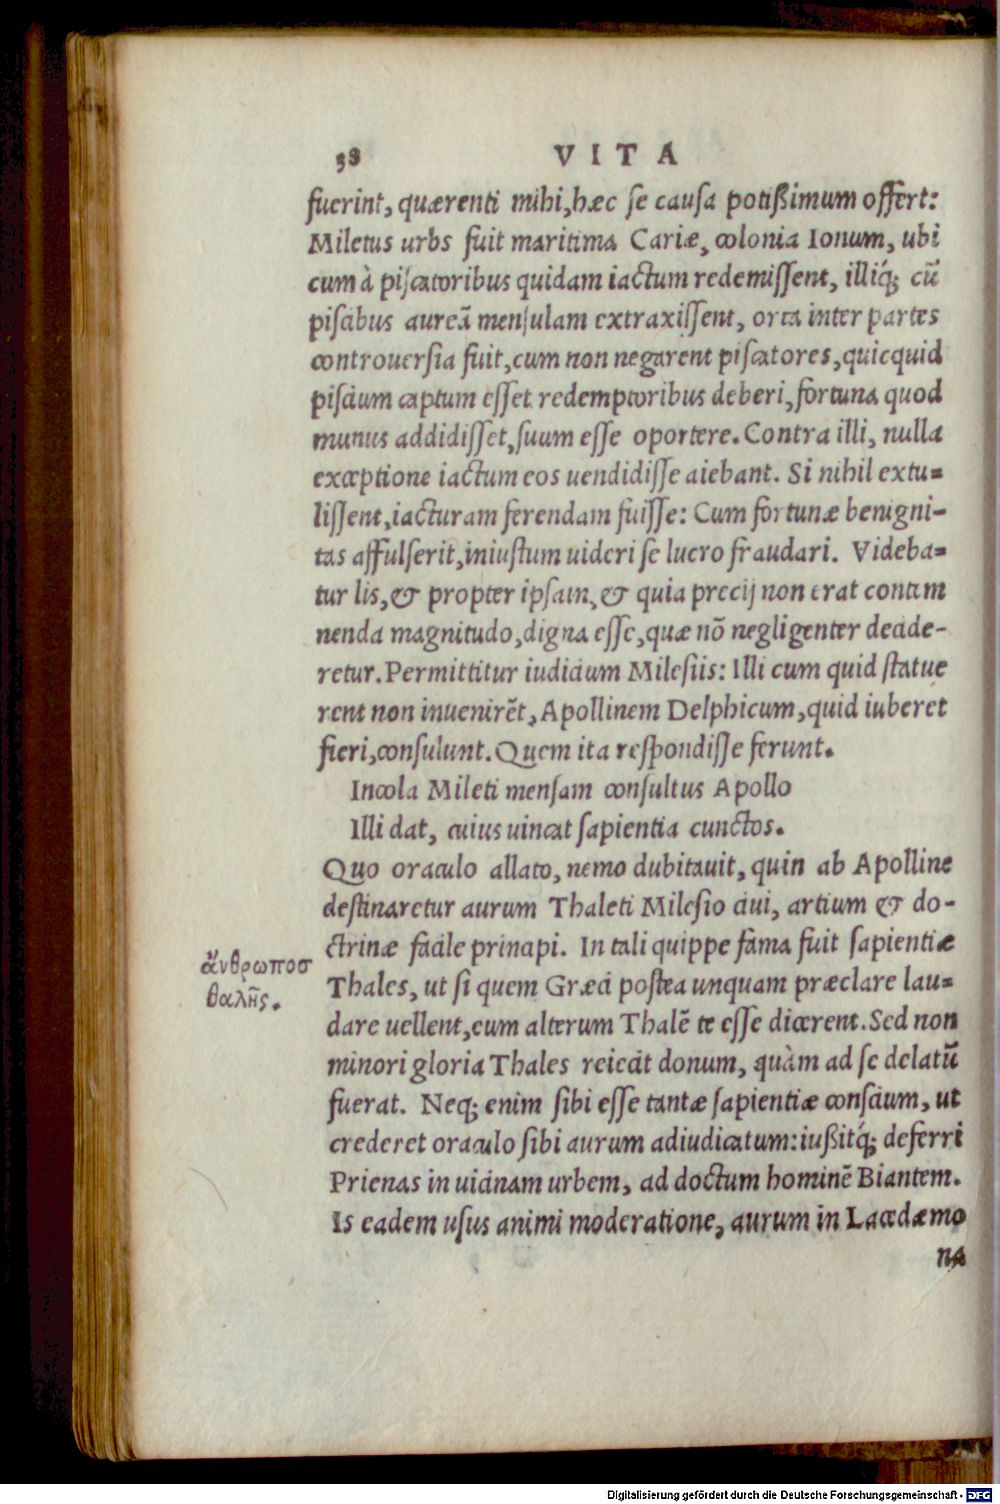 38
VITA
fuerint, quærenti mihi, hæc se causa potißimum offert:
Miletus urbs fuit maritima Cariæ, colonia Ionum, ubi
cum à piscatoribus quidam iactum redemissent, illiq́; cū
piscibus aureā mensulam extraxissent, orta inter partes
controuersia fuit, cum non negarent piscatores, quicquid
piscium captum esset redemptoribus deberi, fortuna quod
munus addidisset, suum esse oportere. Contra illi, nulla
exceptione iactum eos uendidisse aiebant. Si nihil extu-
lissent, iacturam ferendam fuisse: Cum fortunæ benigni-
tas affulserit, iniustum uideri se lucro fraudari. Videba-
tur lis, & propter ipsam, & quia precij non erat contem
nenda magnitudo, digna esse, quæ nō negligenter decide-
retur. Permittitur iudicium Milesiis: Illi cum quid statue
rent non inuenirēt, Apollinem Delphicum, quid iuberet
fieri, consulunt. Quem ita respondisse ferunt.
Incola Mileti mensam consultus Apollo
Illi dat, cuius uincat sapientia cunctos.
Quo oraculo allato, nemo dubitauit, quin ab Apolline
destinaretur aurum Thaleti Milesio ciui, artium & do-
ctrinæ facile principi. In tali quippe fama fuit sapientiæ
ἄνθρωποσ
θαλῆς.
Thales, ut si quem Græci postea unquam præclare lau-
dare uellent, eum alterum Thalē te esse dicerent. Sed non
minori gloria Thales reiecit donum, quàm ad se delatū
fuerat. Neq; enim sibi esse tantæ sapientiæ conscium, ut
crederet oraculo sibi aurum adiudicatum: iußitq́; deferri
Prienas in uicinam urbem, ad doctum hominē Biantem.
Is eadem usus animi moderatione, aurum in Lacedæmo
na
Digitalisierung gefördert durch die Deutsche Forschungsgemeinschaft - DFG